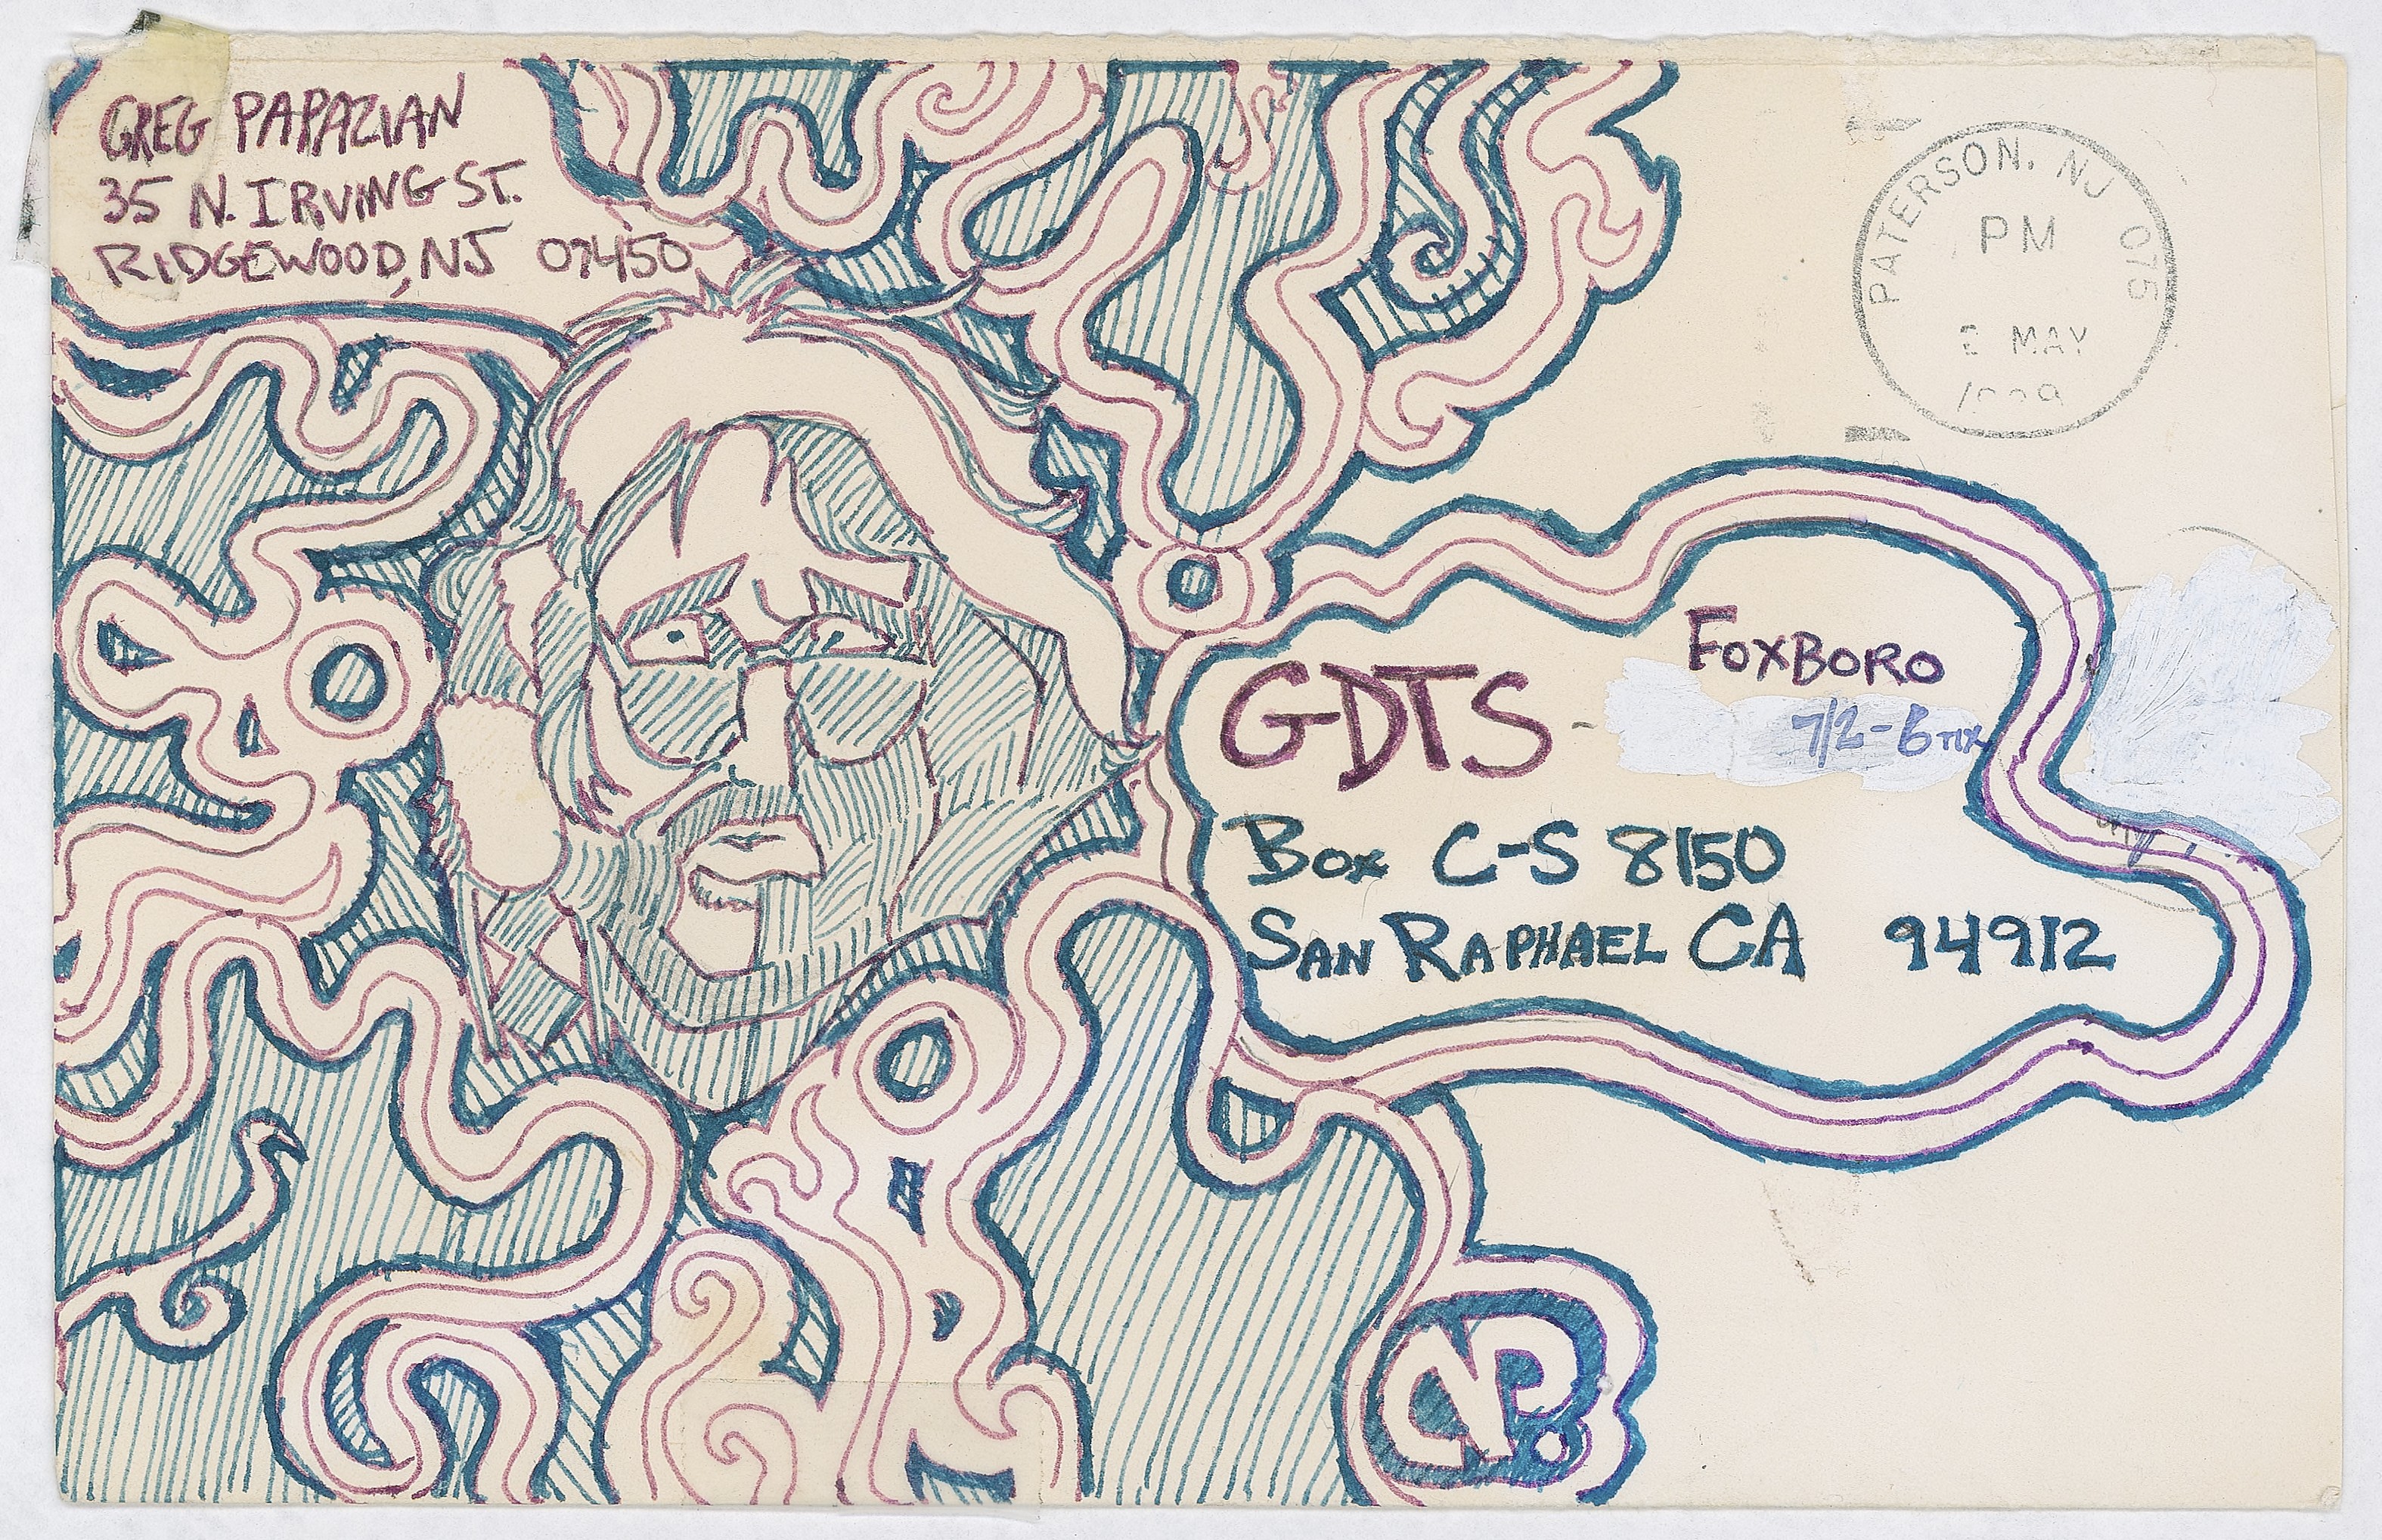 GREG PAPAZIAN
35 N. IRVING ST.
RIDGEWOOD, NJ 07450
PATERSON, NJ 075
PM
2 MAY
FOXBORO
GDTS -
7/2-6 TIX
BOX C-S 8150
SAN RAPHAEL CA 94912